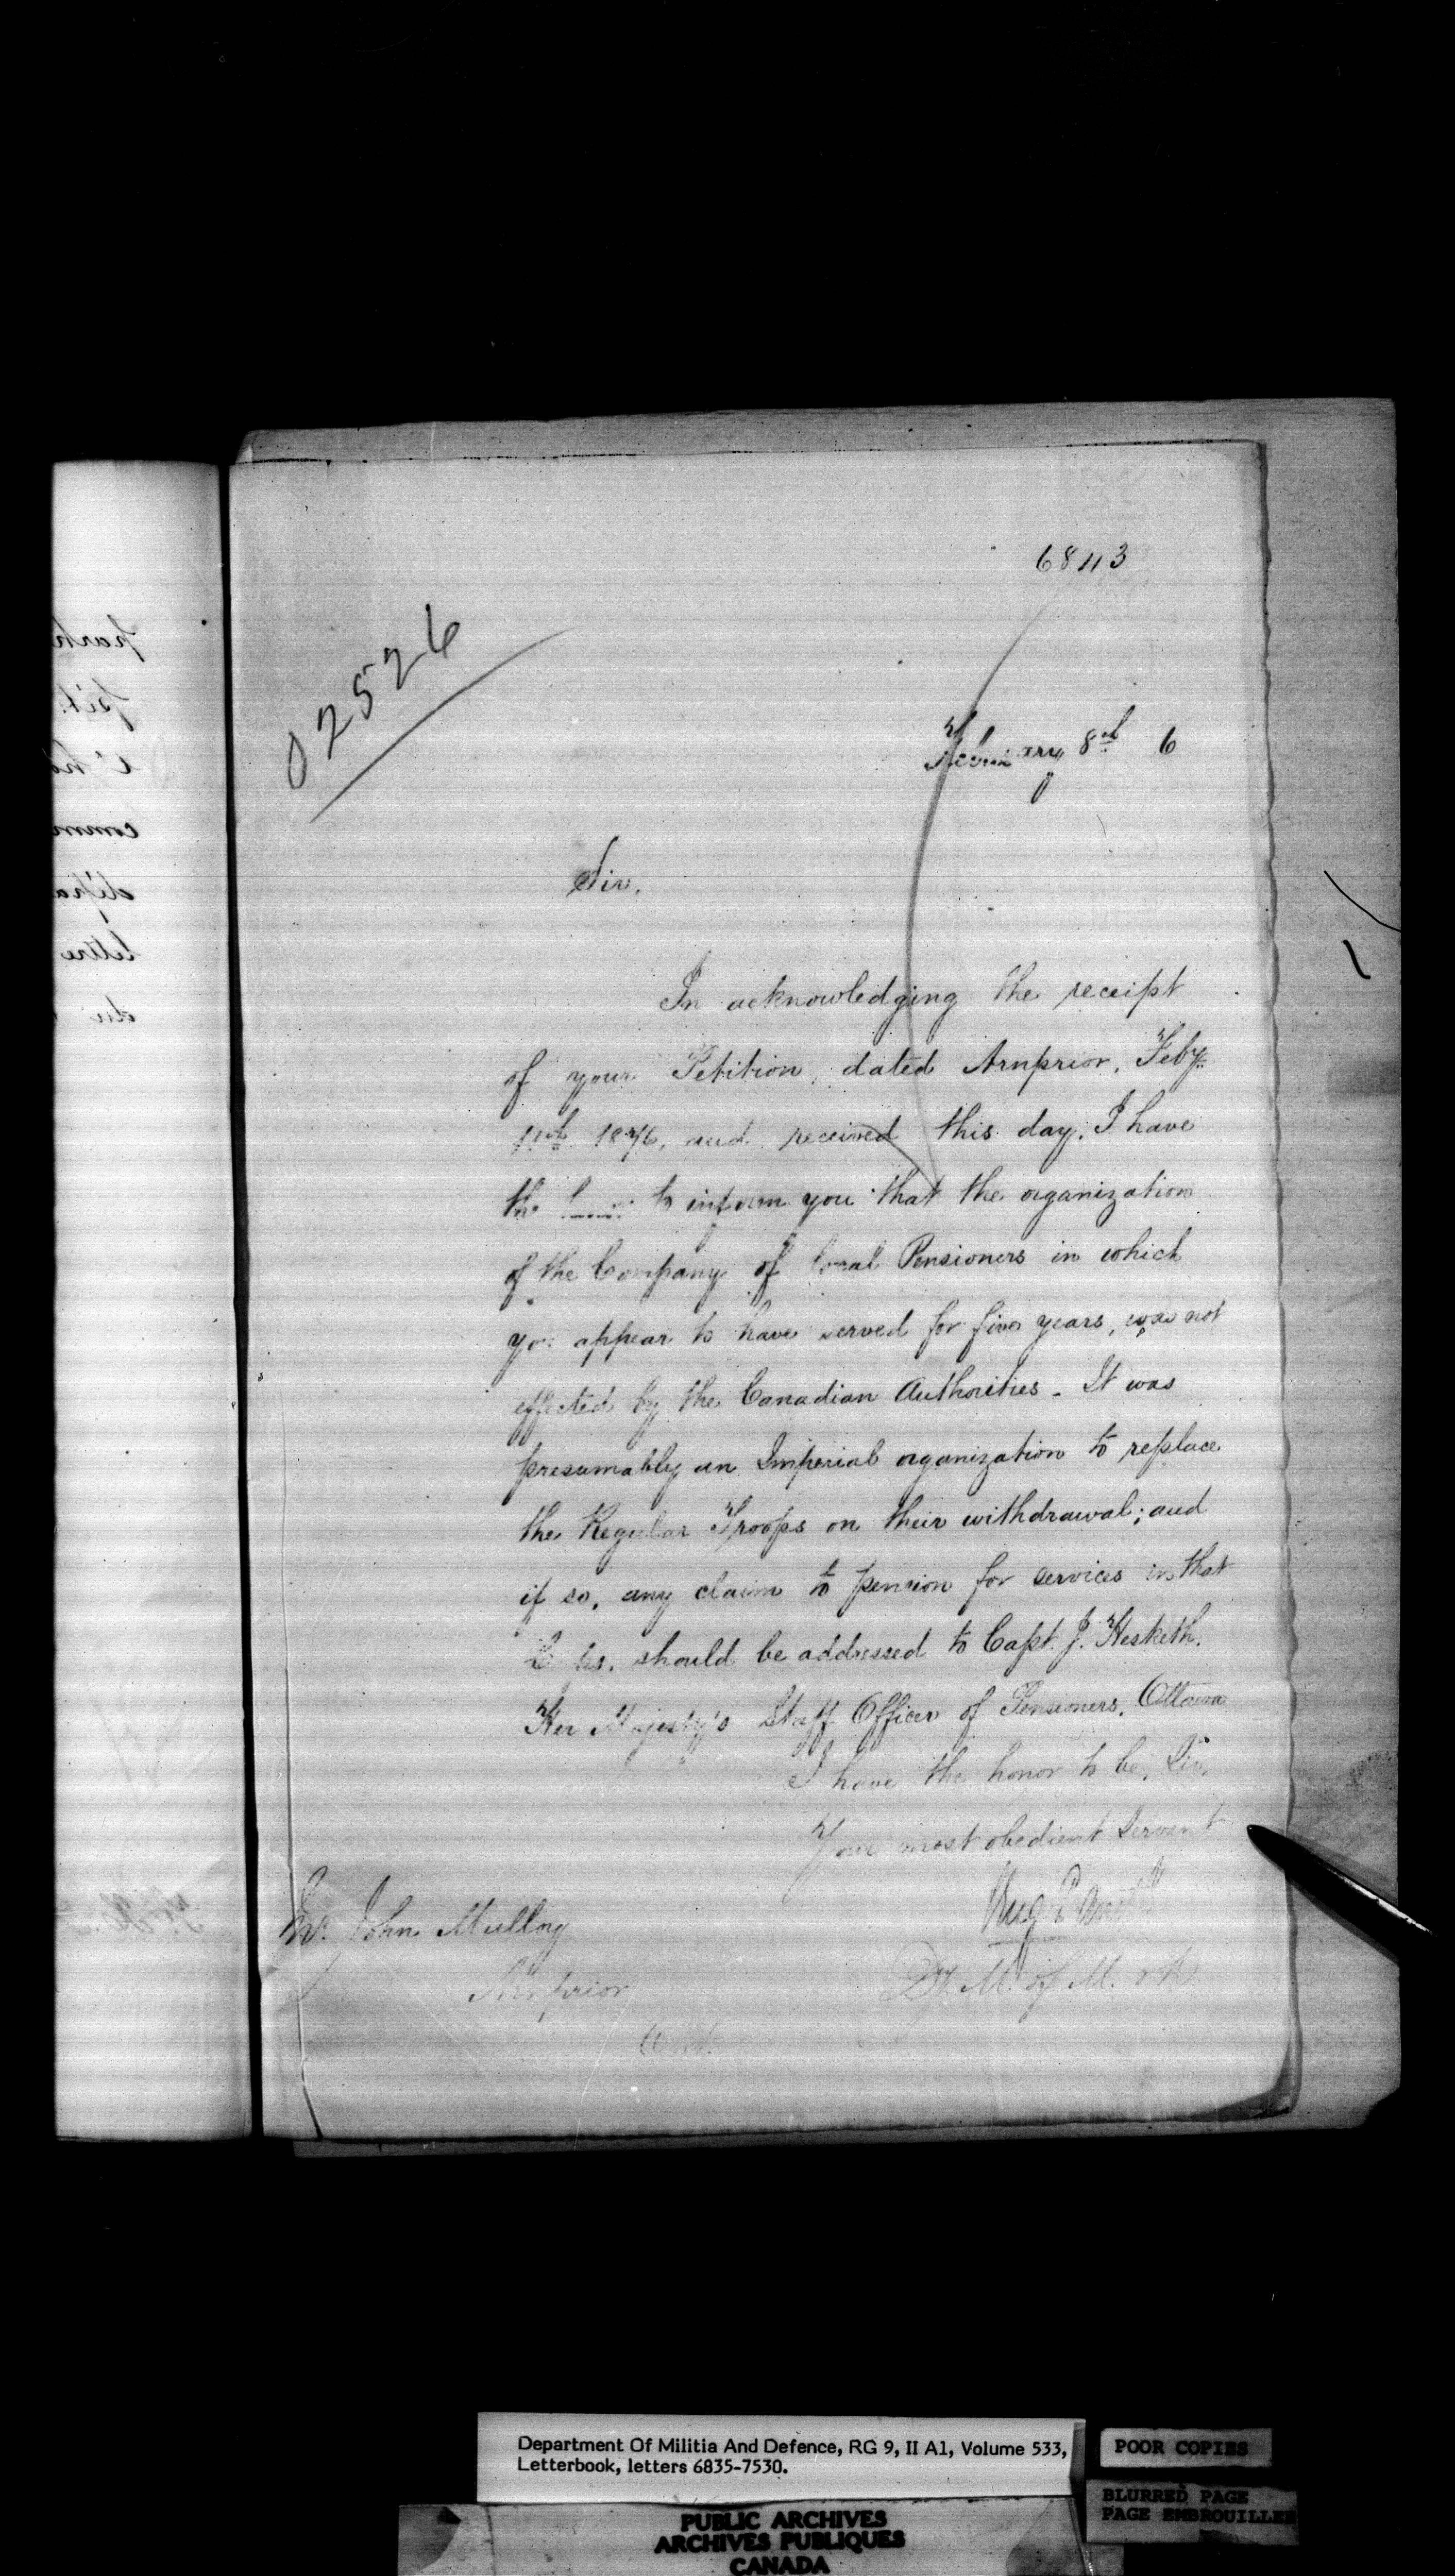 6843
02526
February 8th 6
Sir,
In acknowledging the receipt
of your Petition, dated Arnprior, Feby
1876, and received this day, I have
the to inform you that the organization
of the Company of local Pensioners in which
you appear to have served for five years, was not
effected by the Canadian Authorities - It was
presumably an Imperial organization to replace
the Regular Troops on their withdrawal; and
if so, any claim to pension for services in that
should be addressed to Capt. J. Hesketh,
Her Majesty's Staff Officer of Pensioners, Ottawa
I have the honor to be, Sir,
Your most obedient Servant
Mr. John Mulloy
Arnprior
Dy. M. of M. & D.
Department Of Militia And Defence, RG 9, II A1, Volume 533,
Letterbook, letters 6835-7530.
POOR COPIES
BLURRED PAGE
PAGE EMBROUILLEE
PUBLIC ARCHIVES
ARCHIVES PUBLIQUES
CANADA